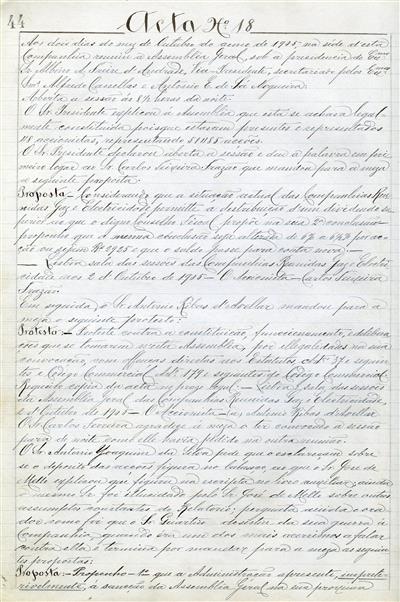 44
Acta Nº 18
Aos dois dias do mez de Outubro do anno de 1905, na séde d'esta
Companhia reuniu a Assembléa Geral, sob a presidencia do Exmo
Sr. Albino A. Freire d'Andrade, Vice-Presidente, secretariado pelos Exmos
Snrs. Alfredo Cansellas e Antonio E. de Sá Nogueira.
Aberta a sessão ás 8½ horas da noite.
O Sr. Presidente explicou á Assembléa que esta se achava legal-
mente constituida pois que estavam presentes e representados
118 accionistas, representando acções.
O Sr. Presidente declarou aberta a sessão e deu a palavra em pri-
meiro logar ao Sr. Carlos Teixeira Frazão que mandou para a meza
a seguinte proposta:
Proposta:- Considerando que a situação actual das Companhias Reu-
nidas Gaz e Electricidade permitte a distribuição d'um dividendo su-
perior ao que o digno Conselho Fiscal propõe na sua 2ª conclusão
proponho que a mesma conclusão seja alterada de para por ac-
ção ou sejam Rs 2925 e que o saldo passe para conta nova.
- Lisboa sala das sessões das Companhias Reunidas Gaz e Electri-
cidade aos 2 d'Outubro de 1905 - O Accionista - Carlos Teixeira
Frazão.
Em seguida, o Sr. Antonio Ribas d'Avellar mandou para a
meza o seguinte protesto:
Protesto:- Protesto contra a constituição, funccionamento, e delibera-
ções que se tomarem n'esta Assembléa, por illegalidades na sua
convocação, com offensas directas aos Estatutos, Art. 37 e seguin-
tes e Codigo Commercial Art. 179 e seguintes do Codigo Commercial.
Requeiro copia da acta no praso legal. - Lisboa, Sala das sessões
da Assembléa Geral das Companhias Reunidas Gaz e Electricidade,
2 d'Outubro de 1905 - O Accionista - (a) Antonio Ribas d'Avellar
O Sr. Carlos Ferreira agradece á meza o ter convocado a sessão
para de noite como elle havia pedido na outra reunião.
O Sr. Antonio Joaquim da Silva pede que o esclareçam sobre
se o deposito das acções figura no balanço, ao que o Sr. José de
Mello explicou que figura na escripta no livro auxiliar; ainda
o mesmo Sr. foi elucidado pelo Sr. José de Mello sobre outros
assumptos constantes do Relatorio; pergunta ainda o ora-
dor como foi que o Sr. Guartin desistiu da sua guerra á
Companhia, quando era um dos mais acerrimos a fallar
contra ella e termina por mandar para a meza as seguin-
tes propostas:
Proposta:- Proponho - 1º que a Administração apresente, impre-
terivelmente, á sancção da Assembléa Geral na sua proxima